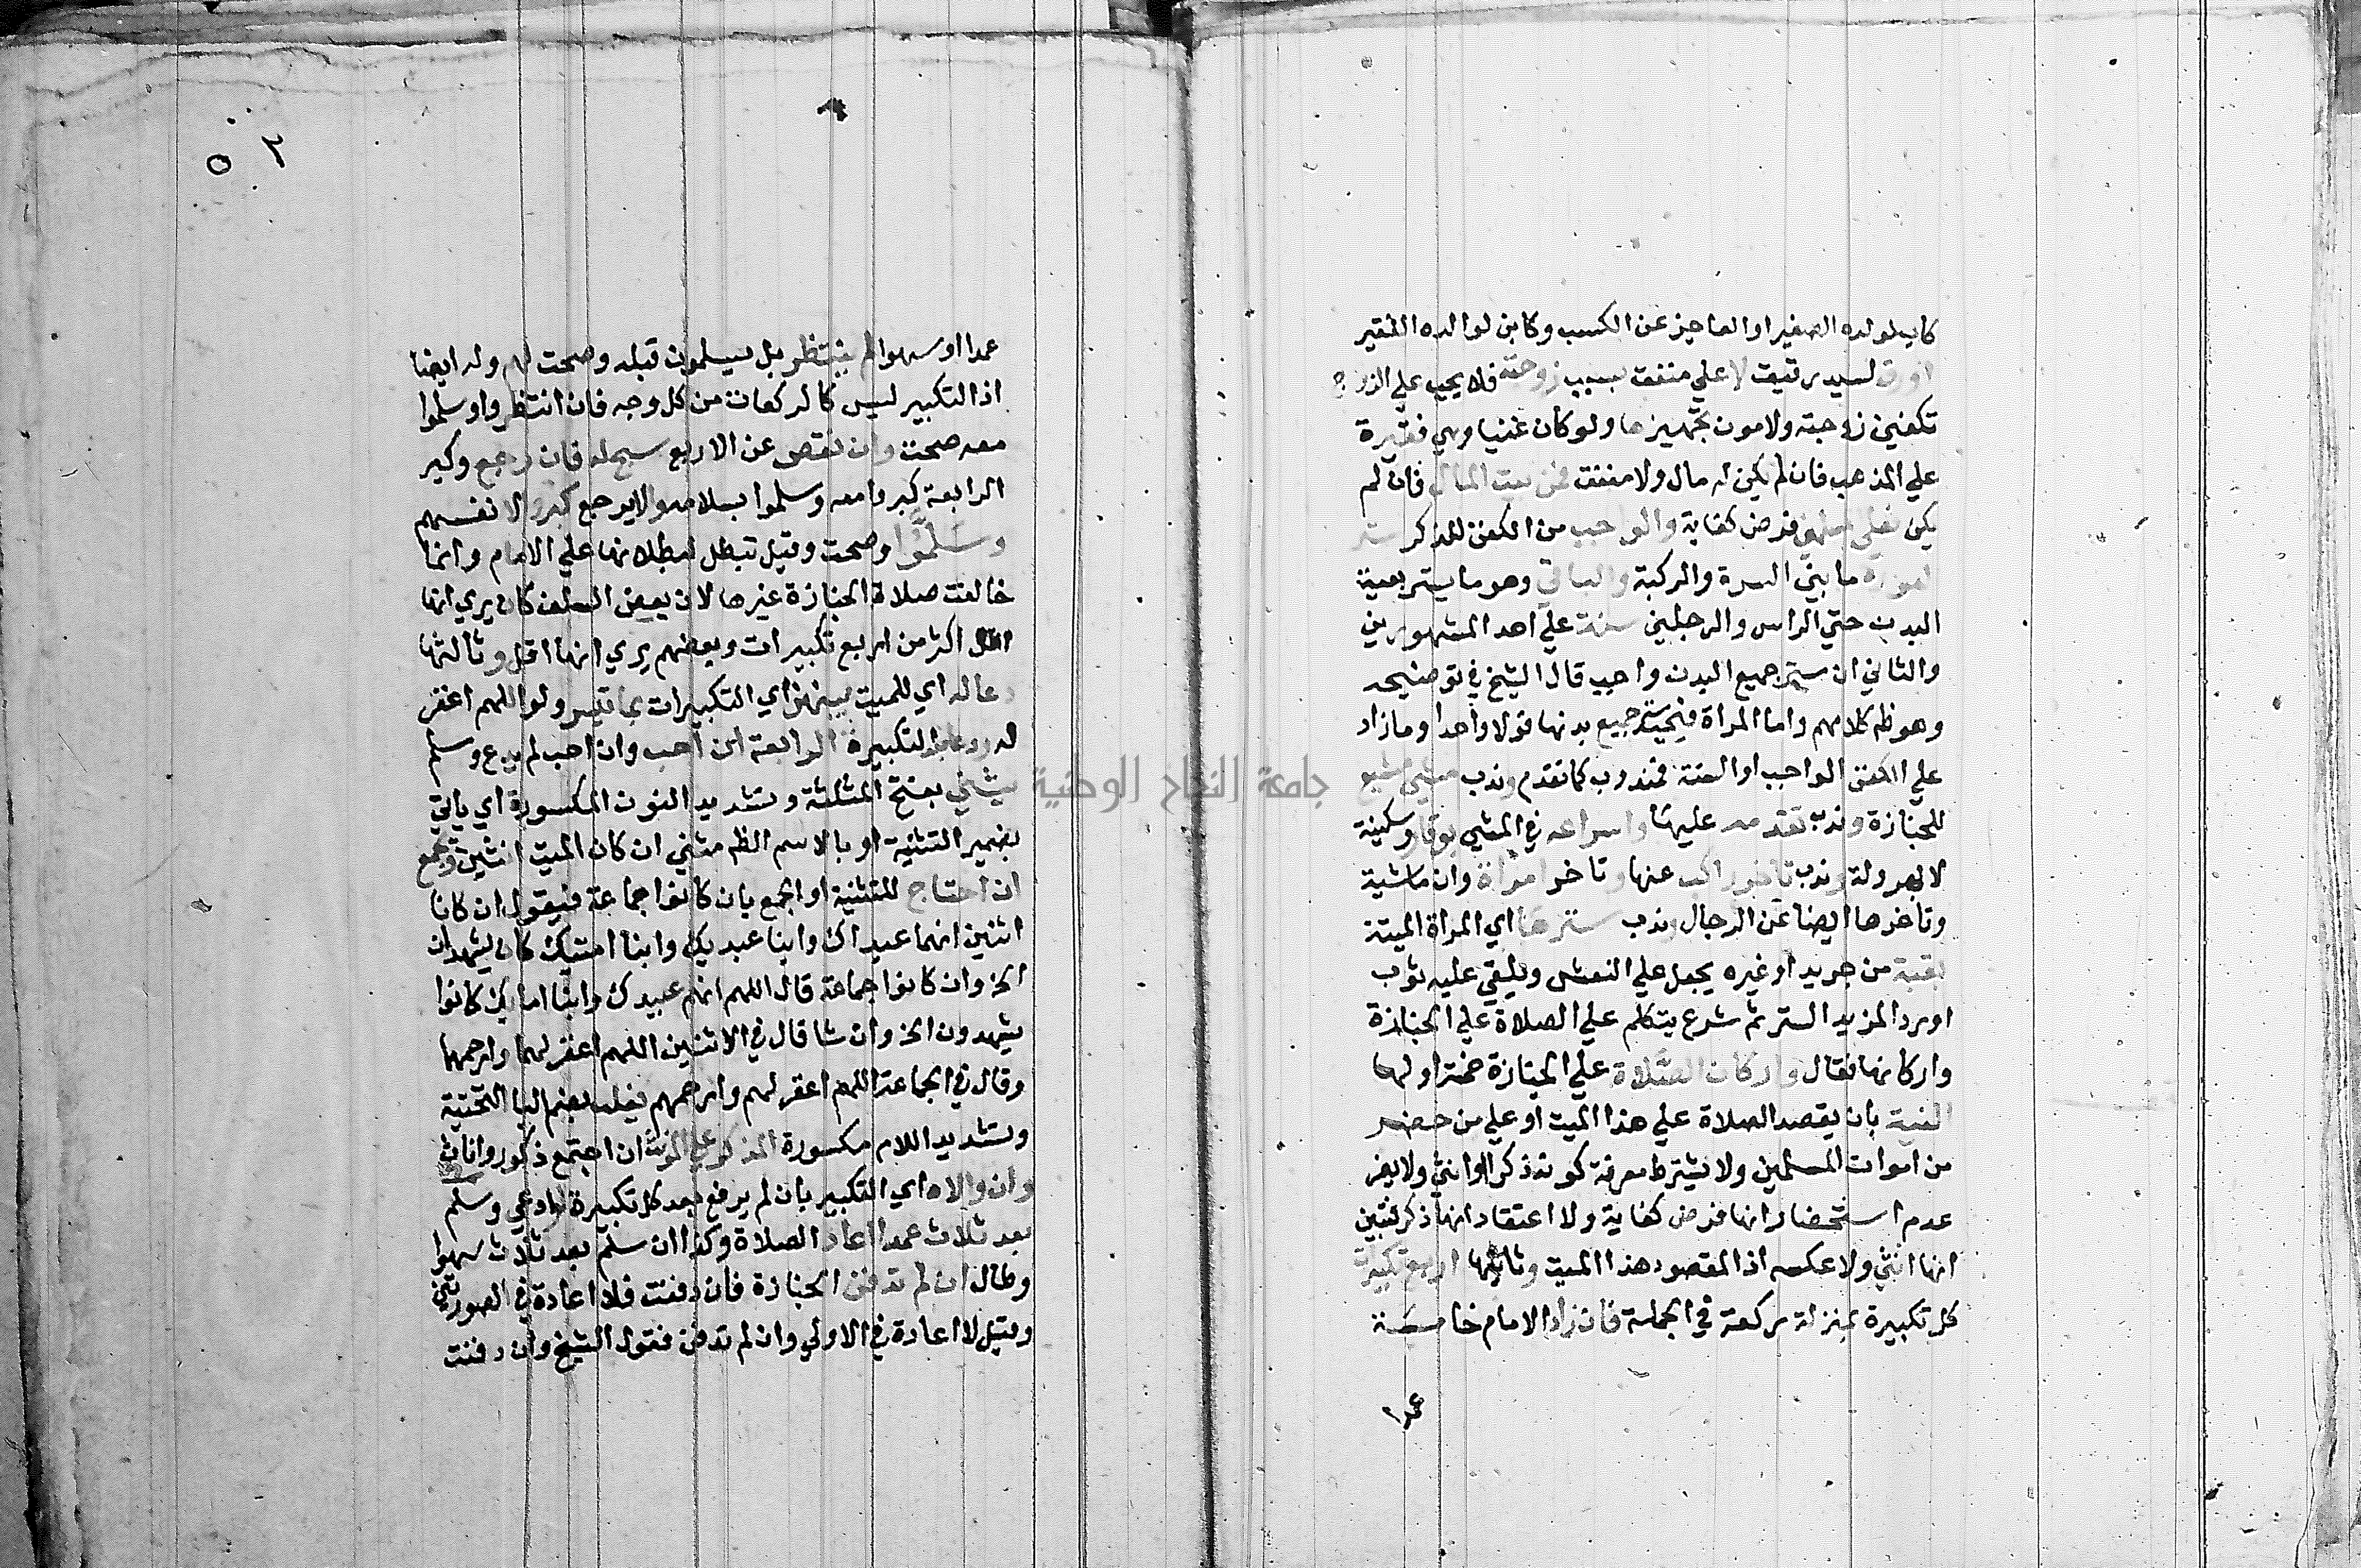 كاب لولده الصغير او العاجز عن الكسب وكابن لوالده الفقير
او رق لسيد رقيق لا علي منفق بسبب زوجية فلا يجب علي الزوج
تكفين زوجته ولا مون تجهيزها ولو كان غنيا وهي فقيرة
علي المذهب فان لم يكن له مال ولا منفق فمن بيت المال فان لم
يكن فعلي المسلمين فرض كفاية والواجب من الكفن للذكر ستر
العورة ما بين السرة والركبة والباقي وهو ما يستر بقية
البدن حتي الراس والرجلين سنة علي احد المشهورين
والثاني ان ستر جميع البدن واجب قال الشيخ في توضيحه
وهو ظ كلامهم واما المراة فيجب ستر جميع بدنها قولا واحدا وما زاد
علي الكفن الواجب او السنة فمندوب كما تقدم وندب مشي مشيع
للجنازة وندب تقدمه عليها واسراعه في المشي بوقار وسكينة
لا بهرولة وندب تاخر راكب عنها وتاخر امراة وان ماشية
وتاخرها ايضا عن الرجال وندب سترها اي المراة الميتة
بقبة من جريد او غيره يجعل علي النعش ويلقي عليه ثوب
او ردا لمزيد الستر ثم شرع يتكلم علي الصلاة علي الجنازة
واركانها فقال واركان الصلاة علي الجنازة خمسة اولها
النية بان يقصد الصلاة علي هذا الميت او علي من حضر
من اموات المسلمين ولا يشترط معرفة كونه ذكرا او انثي ولا يضر
عدم استحضار انها فرض كفاية ولا اعتقاد انها ذكر فتبين
انها انثي ولا عكسه اذ المقصود هذا الميت وثانيها اربع تكبيرات
كل تكبيرة بمنزلة ركعة في الجملة فان زاد الامام خامسة
عمدا
٥٣
عمدا او سهوا لم ينتظر بل يسلمون قبله وصحت لهم وله ايضا
اذ التكبير ليس كالركعات من كل وجه فان انتظروا وسلموا
معه صحت وان نقص عن الاربع سبح له فان رجع وكبر
الرابعة كبروا معه وسلموا بسلامه والا يرجع كبروا لانفسهم
وسلموا وصحت وقيل تبطل لبطلانها علي الامام وانما
خالفت صلاة الجنازة غيرها لان بعض السلف كان يري انها
اكثر من اربع تكبيرات وبعضهم يري انها اقل وثالثها
دعا له اي للميت بينهن اي التكبيرات بما تيسر ولو اللهم اغفر
له ودعا بعد التكبيرة الرابعة ان احب وان احب لم يدع وسلم
يثني بفتح المثلثة وتشديد النون المكسورة اي ياتي
بضمير التثنية او بالاسم الظ مثني ان كان الميت اثنين ويجمع
ان احتاج للتثنية او الجمع بان كانوا جماعة فيقول ان كانا
اثنين انهما عبداك وابنا عبديك وابنا امتيك كانا يشهدان
الخ وان كانوا جماعة قال اللهم انهم عبيدك وابنا امايك كانوا
يشهدون الخ وان شا قال في الاثنين اللهم اغفر لهما وارحمهما
وقال في الجماعة اللهم اغفر لهم وارحمهم يغلب بضم اليا التحتية
وتشديد اللام مكسورة المذكر علي المونث ان اجتمع ذكور واناث
وان والاه اي التكبير بان لم يرفع بعد كل تكبيرة او دعي وسلم
بعد ثلاث عمدا اعاد الصلاة وكذا ان سلم بعد ثلاث سهوا
وطال ان لم تدفن الجنازة فان دفنت فلا اعادة في الصورتين
وقيل لا اعادة في الاولي وان لم تدفن فقول الشيخ وان دفنت
جامعة النجاح الوطنية